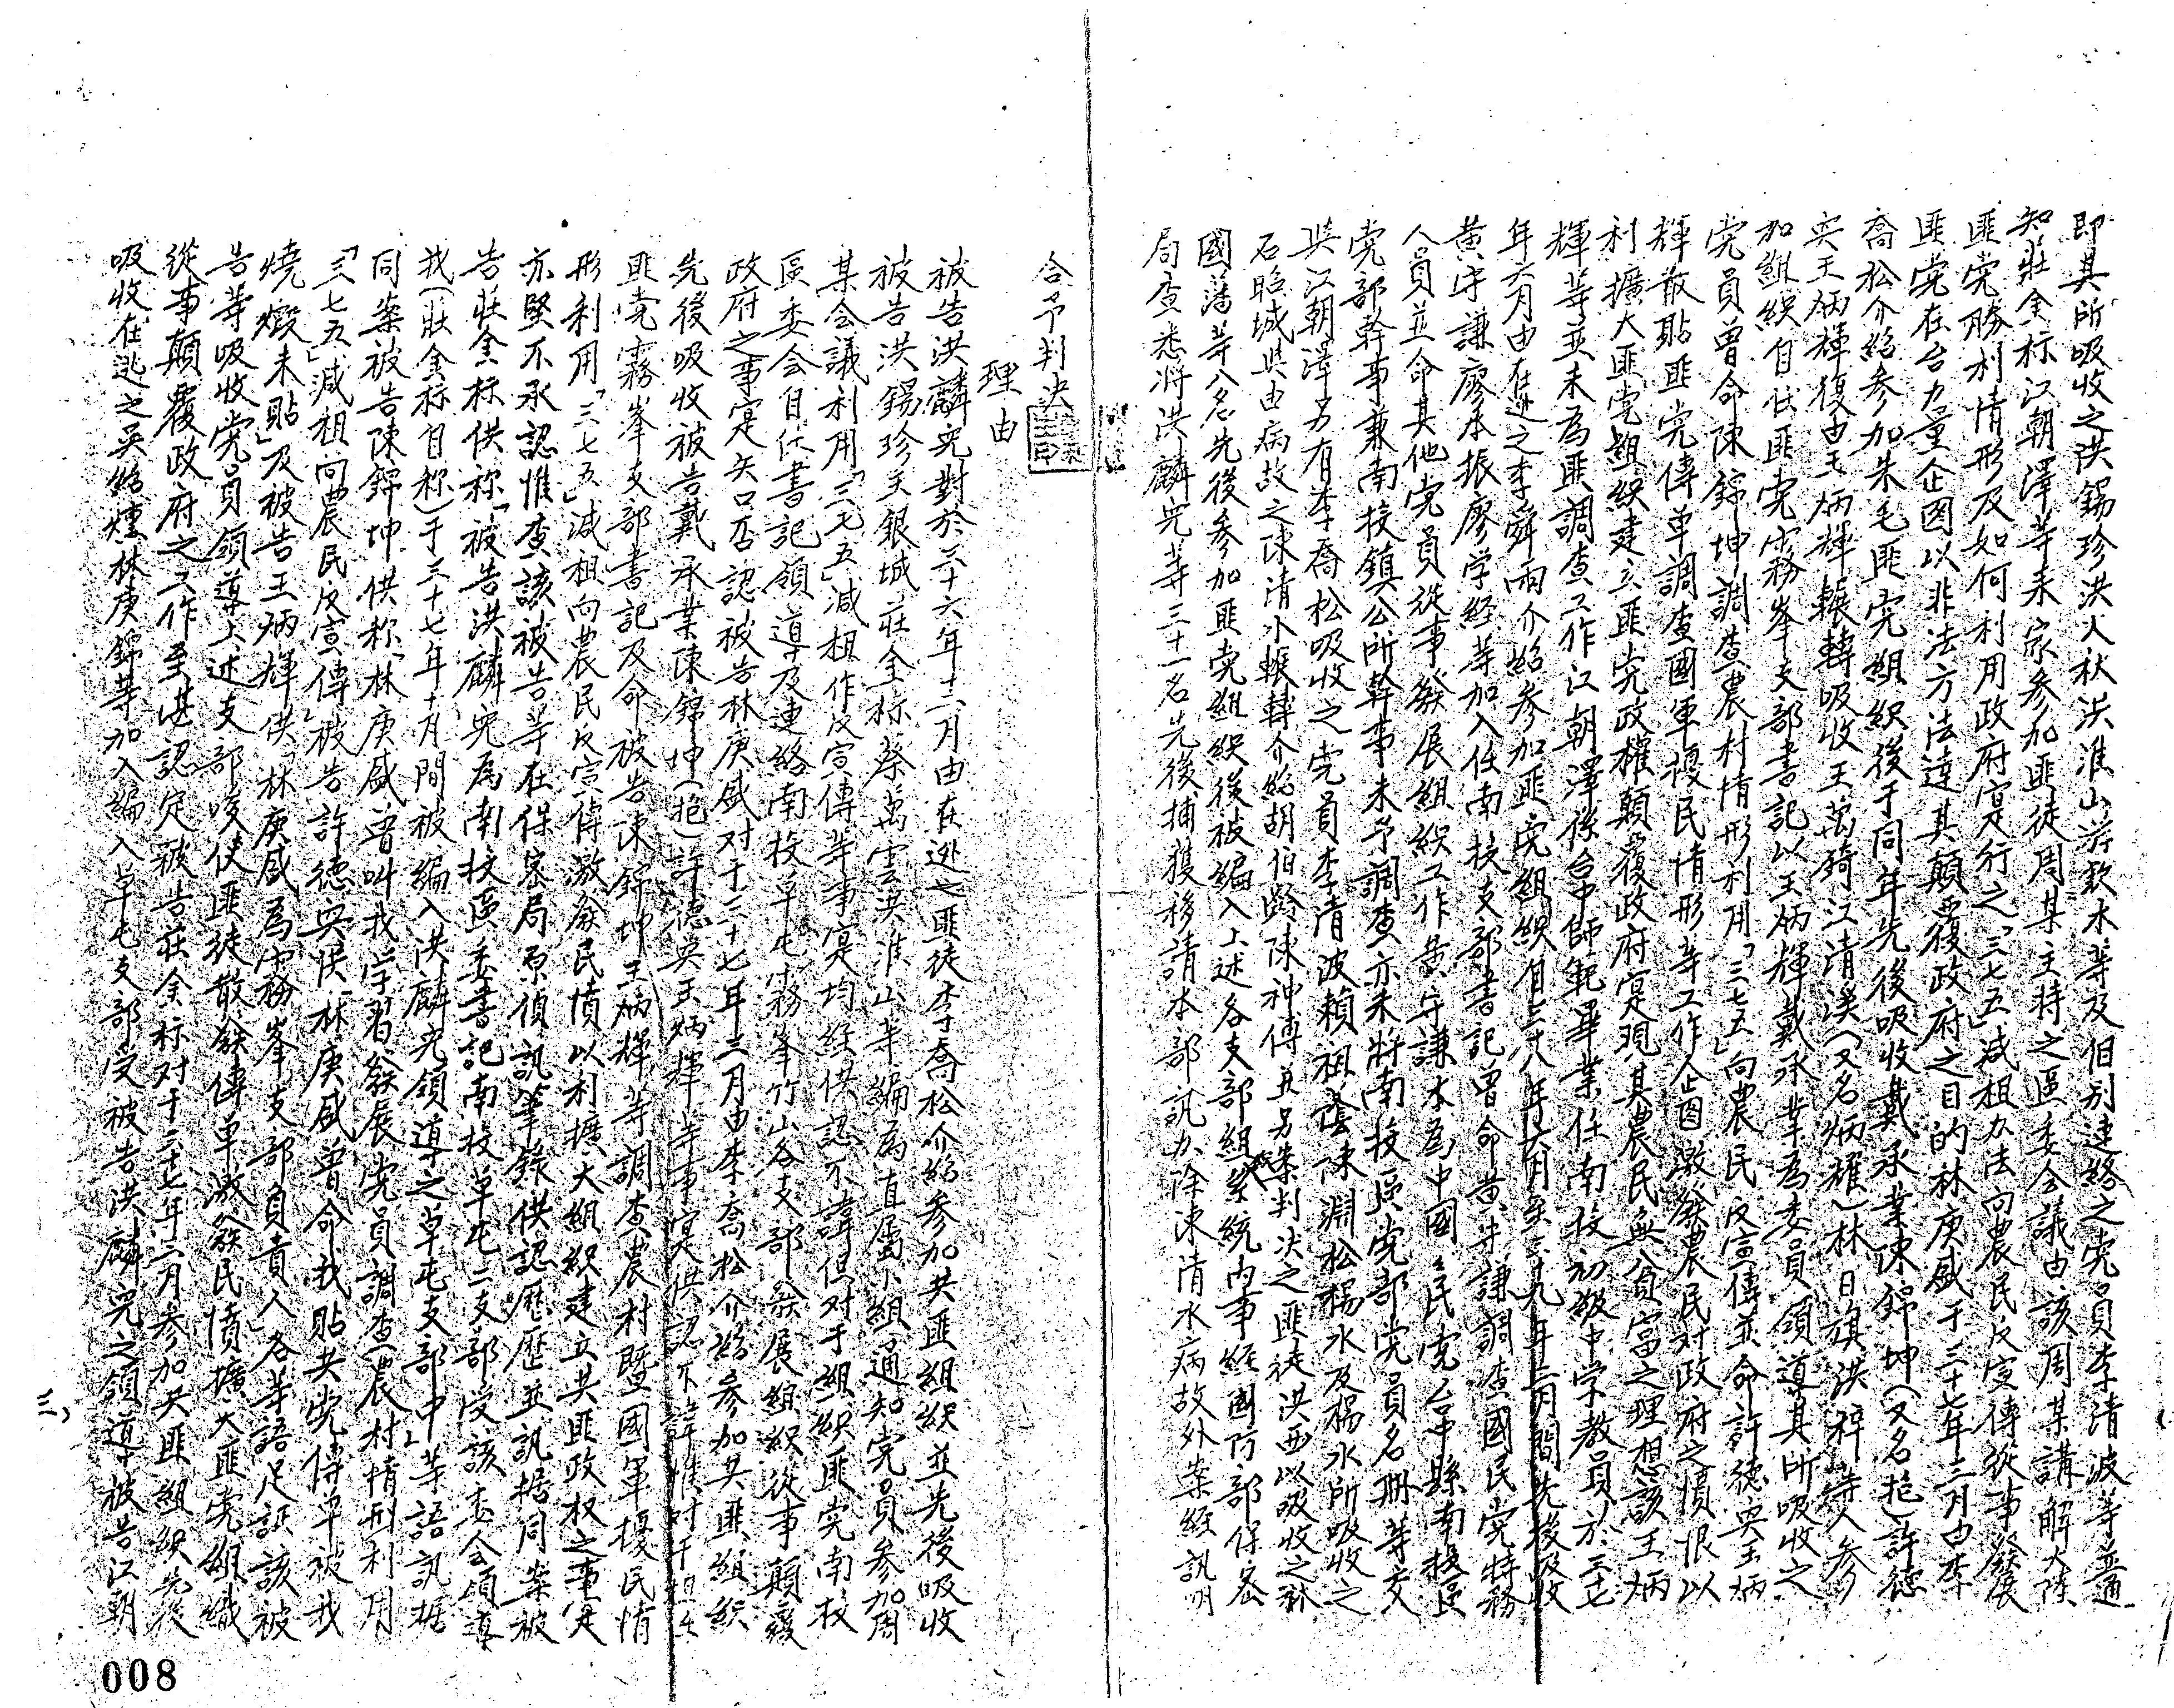 即其所吸收之洪錫珍洪火秋洪淮山游欽水等及個別連絡之党員李清波等普通
知莊金标江朝澤等来家参加匪徒周某主持之區委会議由該周某講解大陸
匪党勝利情形及如何利用政府寔行之「三七五」減租办法向農民反宣傳從事發展
匪党在台力量企图以非法方法達其顛覆政府之目的林庚盛于三十七年三月由李
喬松介紹参加朱毛匪党組織後于同年先後吸收戴承業陳錦坤(又名抱)許德
英王炳輝復由王炳輝輾轉吸收王萬錡江清漢(又名炳耀)林日旗洪梓等人参
加組織自任匪党霧峯支部書記以王炳輝戴承業為委員領導其所吸收之
党員曾命陳錦坤調查農村情形利用「三七五」向農民反宣傳並命許德英王炳
輝散貼匪党傳单調查國軍擾民情形等工作企图激發農民对政府之憤恨以
利擴大匪党組織建立匪党政權顛覆政府寔現其農民無分貧富之理想該王炳
輝等並未為匪調查工作江朝澤係台中師範畢業任南投初級中学教員於三七
年六月由在逃之李舜雨介紹参加匪党組織自三十八年六月至三十九年二月間先後吸收
黄守謙廖本振廖学経等加入任南投支部書記曾命黄守謙調查國民党特務
人員並命其他党員從事發展組織工作黄守謙本為中國國民党台中縣南投區
党部幹事兼南投鎮公所幹事未予調查亦未將南投區党部党員名册等交
與江朝澤另有李喬松吸收之党員李清波賴祖蔭陳淵松楊水及楊水所吸收之
石昭城與由病故之陳清水輾轉介紹胡伯齡陳神傳並另案判决之匪徒洪西以吸收之林
國藩等八名先後参加匪党組織後被編入上述各支部組系統内事経國防部保密
局查悉將洪麟兜等三十一名先後捕獲移請本部訊办除陳清水病故外案経訊明
合予判决
理由
被告洪麟兜對於三十六年十二月由在逃之匪徒李喬松介紹参加共匪組織並先後吸收
被告洪錫珍王銀城莊金标蔡萬雲洪淮山等編為直屬小組通知党員参加周
某会議利用「三七五」減租作反宣傳等事寔均経供認不諱但对于組織匪党南投
區委会自任書記領導及連絡南投草屯霧峯竹山各支部發展組織從事顛覆
政府之事寔矢口否認被告林庚盛对于三十七年三月由李喬松介紹参加共匪組織
先後吸收被告戴承業陳錦坤(抱)許德英王炳輝等事寔供認不諱惟对于担任
匪党霧峯支部書記及命被告陳錦坤王炳輝等調查農村暨國軍擾民情
形利用「三七五」減租向農民反宣傳激發民憤以利擴大組織建立共匪政权之事寔
亦堅不承認惟查該被告等在保密局原偵訊筆錄供認歷歷並訊据同案被
告莊金标供称「被告洪麟兜為南投區委書記南投草屯二支部受該委会領導
我(莊金标自称)于三十七年十月間被編入洪麟兜領導之草屯支部中」等語訊据
同案被告陳錦坤供称「林庚盛曾叫我学習發展党員調查農村情形利用
「三七五」減租向農民反宣傳」被告許德英供「林庚盛曾命我貼共党傳单被我
燒燬未貼」及被告王炳輝供「林庚盛為霧峯支部負責人」各等語足証該被
告等吸收党員領導上述支部唆使匪徒散發傳单激發民憤擴大匪党組織
從事顛覆政府之工作至堪認定被告莊金标对于三十七年六月参加共匪組織先後
吸收在逃之吳紹爐林庚錦等加入編入草屯支部受被告洪麟兜之領導被告江朝
三、
008